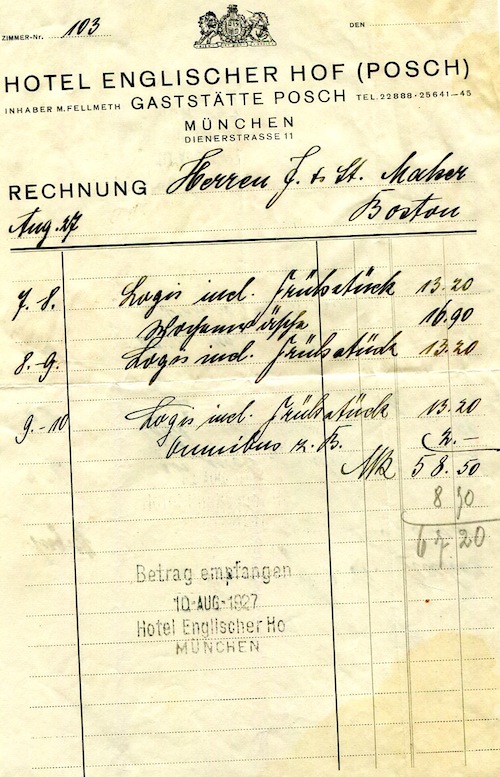 ZIMMER-Nr. 103 DEN
HOTEL ENGLISCHER HOF (POSCH)
INHABER M. FELLMETH GASTSTÄTTE POSCH TEL. 22888 · 25641-45
MÜNCHEN
DIENERSTRASSE 11
RECHNUNG Herren J. & St. Maher
Boston
Aug. 27
7.-8. Logis incl. Frühstück 13.20
16.90
8.-9. Logis incl. Frühstück 13.20
9.-10 Logis incl. Frühstück 13.20
Omnibus z. B. 2.-
Mk 58.50
8 70
67 20
Betrag empfangen
10-AUG-1927
Hotel Englischer Ho
MÜNCHEN